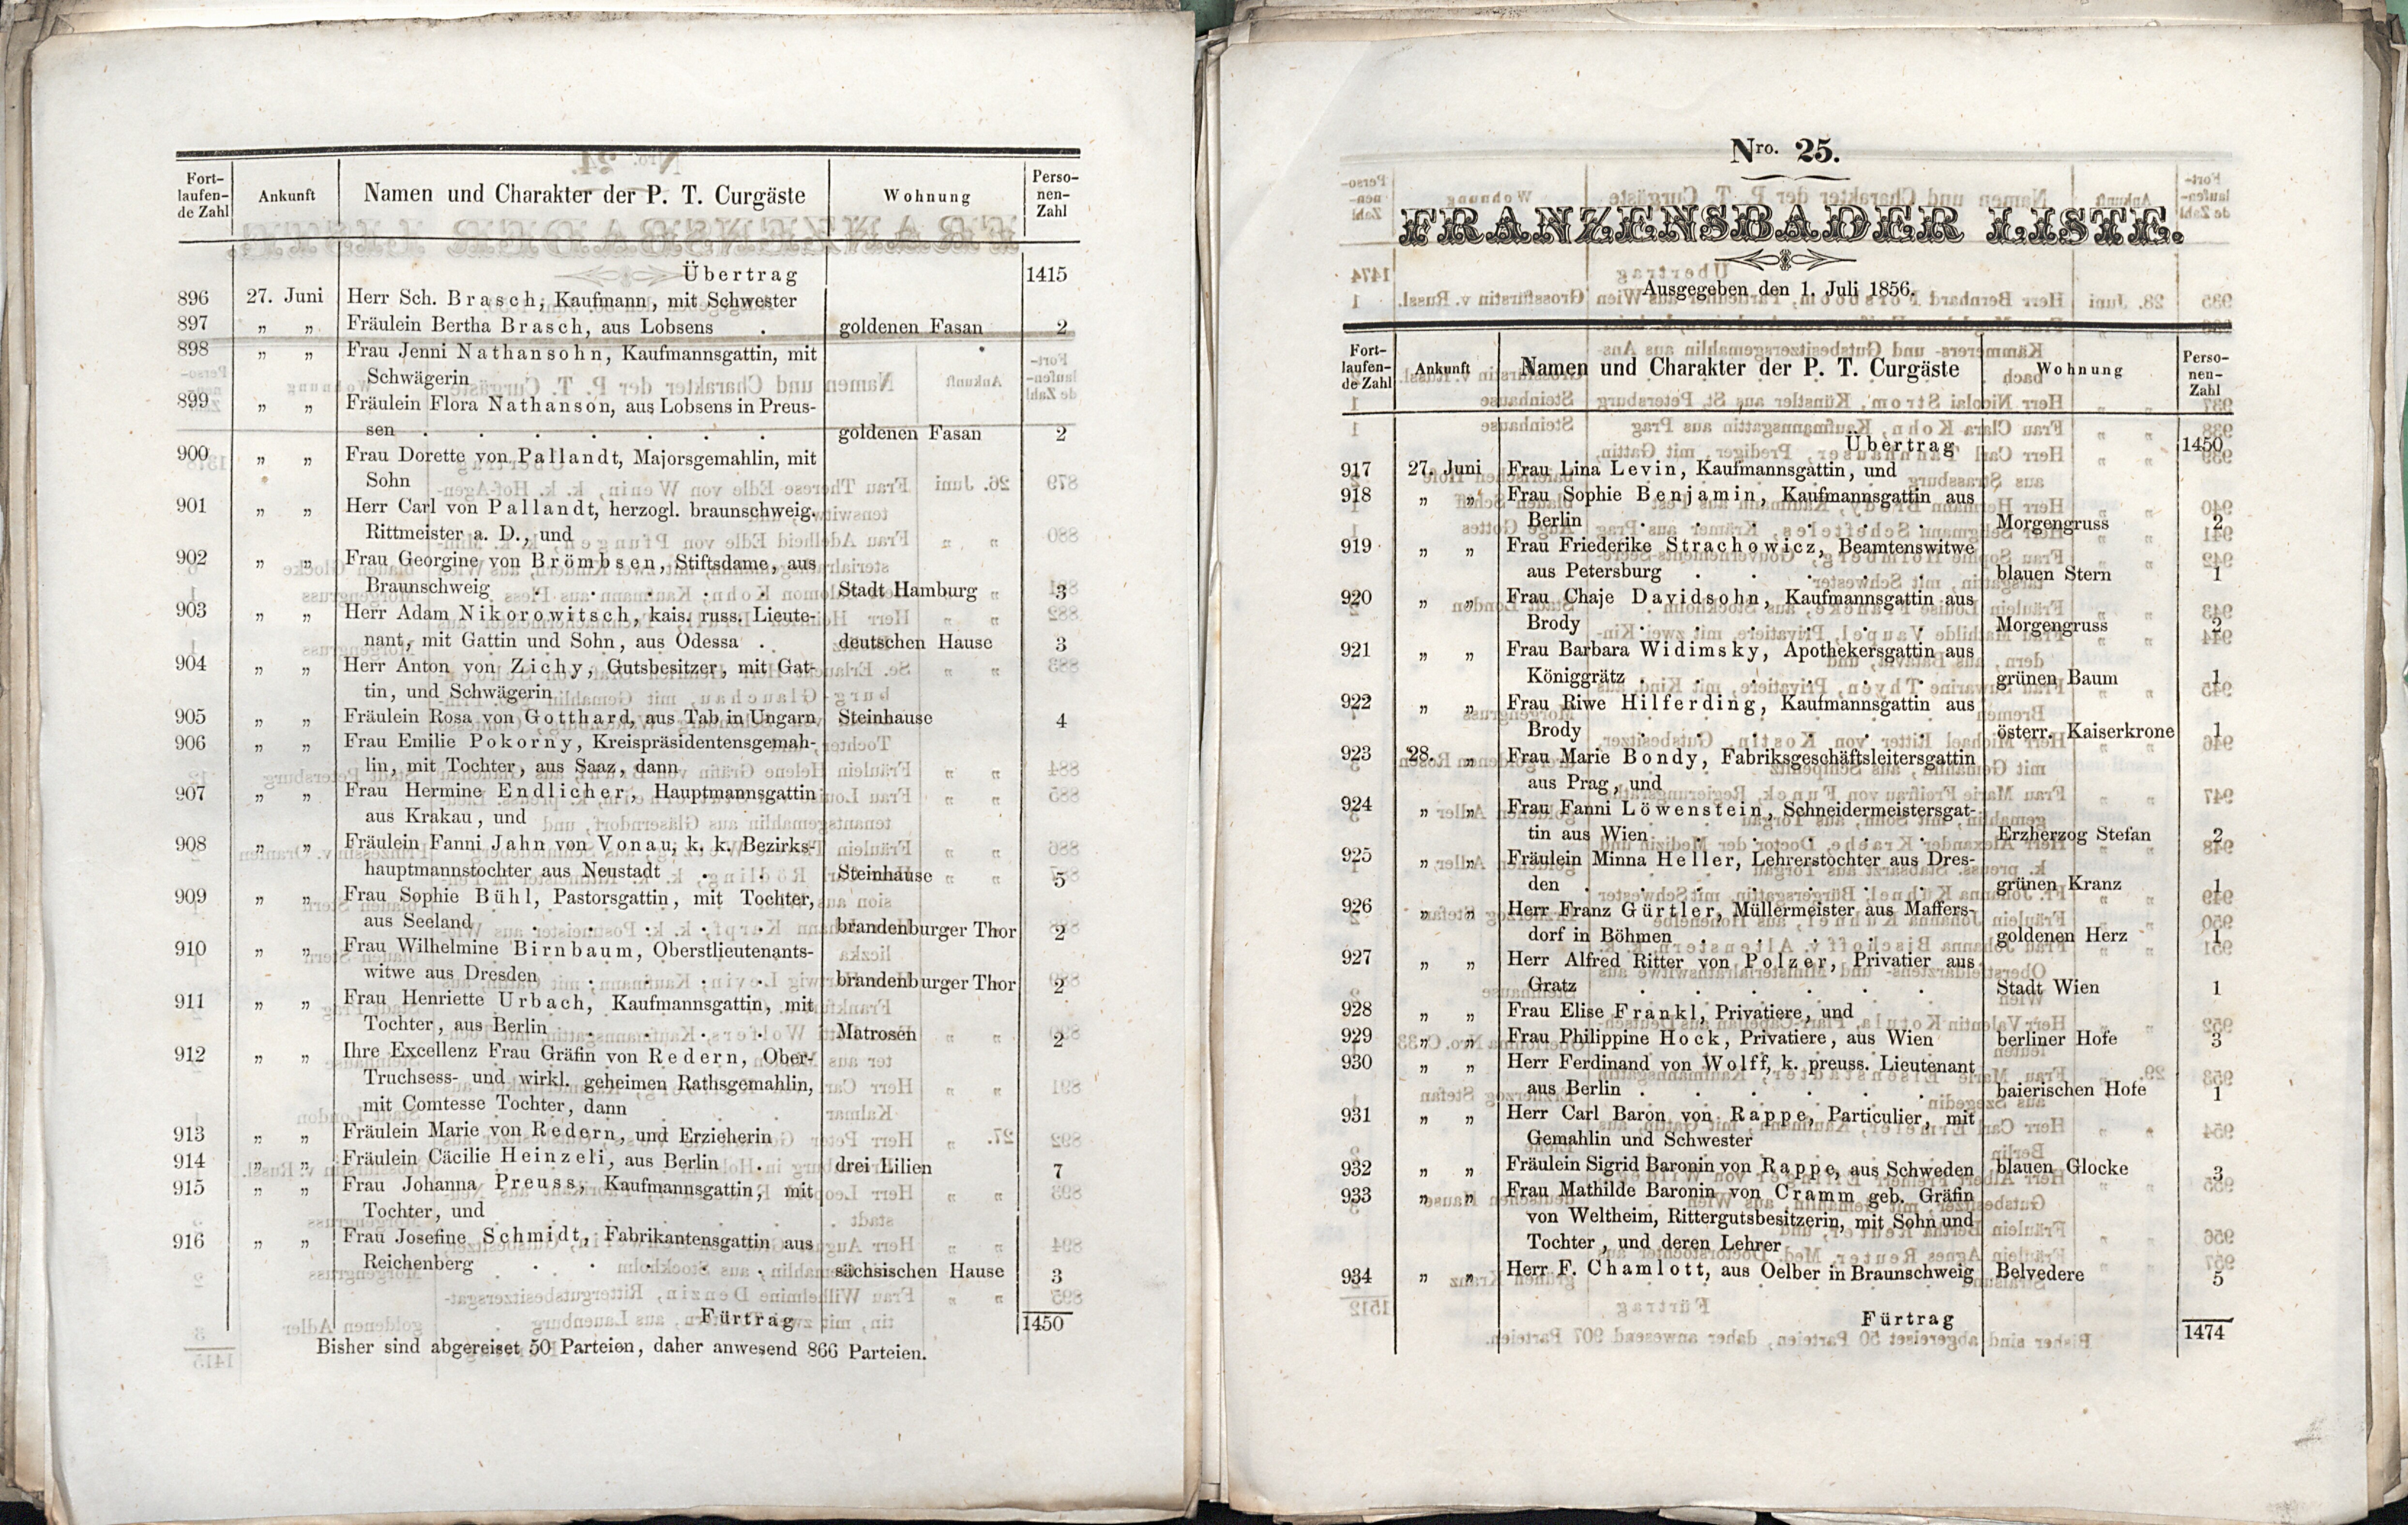 Fort-
laufen-
de Zahl
Ankunft
Namen und Charakter der P. T. Curgäste
Wohnung
Perso-
nen-
Zahl
Übertrag 1415
896 27. Juni Herr Sch. Brasch, Kaufmann, mit Schwester
897 „ „ Fräulein Bertha Brasch, aus Lobsens . goldenen Fasan 2
898 „ „ Frau Jenni Nathansohn, Kaufmannsgattin, mit
Schwägerin
899 „ „ Fräulein Flora Nathanson, aus Lobsens in Preus-
sen . . . . . . . goldenen Fasan 2
900 „ „ Frau Dorette von Pallandt, Majorsgemahlin, mit
Sohn
901 „ „ Herr Carl von Pallandt, herzogl. braunschweig.
Rittmeister a. D., und
902 „ „ Frau Georgine von Brömbsen, Stiftsdame, aus
Braunschweig . . . . . Stadt Hamburg 3
903 „ „ Herr Adam Nikorowitsch, kais. russ. Lieute-
nant, mit Gattin und Sohn, aus Odessa . deutschen Hause 3
904 „ „ Herr Anton von Zichy, Gutsbesitzer, mit Gat-
tin, und Schwägerin
905 „ „ Fräulein Rosa von Gotthard, aus Tab in Ungarn Steinhause 4
906 „ „ Frau Emilie Pokorny, Kreispräsidentensgemah-
lin, mit Tochter, aus Saaz, dann
907 „ „ Frau Hermine Endlicher, Hauptmannsgattin
aus Krakau, und
908 „ „ Fräulein Fanni Jahn von Vonau, k. k. Bezirks-
hauptmannstochter aus Neustadt . . Steinhause 5
909 „ „ Frau Sophie Bühl, Pastorsgattin, mit Tochter,
aus Seeland . . . . . brandenburger Thor 2
910 „ „ Frau Wilhelmine Birnbaum, Oberstlieutenants-
witwe aus Dresden . . . . brandenburger Thor 2
911 „ „ Frau Henriette Urbach, Kaufmannsgattin, mit
Tochter, aus Berlin . . . . Matrosen 2
912 „ „ Ihre Excellenz Frau Gräfin von Redern, Ober-
Truchsess- und wirkl. geheimen Rathsgemahlin,
mit Comtesse Tochter, dann
913 „ „ Fräulein Marie von Redern, und Erzieherin
914 „ „ Fräulein Cäcilie Heinzeli, aus Berlin . drei Lilien 7
915 „ „ Frau Johanna Preuss, Kaufmannsgattin, mit
Tochter, und
916 „ „ Frau Josefine Schmidt, Fabrikantensgattin aus
Reichenberg . . . . . sächsischen Hause 3
Fürtrag 1450
Bisher sind abgereiset 50 Parteien, daher anwesend 866 Parteien.
Nro. 25.
FRANZENSBADER LISTE.
Ausgegeben den 1. Juli 1856.
Fort-
laufen-
de Zahl
Ankunft
Namen und Charakter der P. T. Curgäste
Wohnung
Perso-
nen-
Zahl
Übertrag 1450
917 27. Juni Frau Lina Levin, Kaufmannsgattin, und
918 „ „ Frau Sophie Benjamin, Kaufmannsgattin aus
Berlin . . . . . . Morgengruss 2
919 „ „ Frau Friederike Strachowicz, Beamtenswitwe
aus Petersburg . . . . . blauen Stern 1
920 „ „ Frau Chaje Davidsohn, Kaufmannsgattin aus
Brody . . . . . . Morgengruss 2
921 „ „ Frau Barbara Widimsky, Apothekersgattin aus
Königgrätz . . . . . . grünen Baum 1
922 „ „ Frau Riwe Hilferding, Kaufmannsgattin aus
Brody . . . . . . österr. Kaiserkrone 1
923 28. „ Frau Marie Bondy, Fabriksgeschäftsleitersgattin
aus Prag, und
924 „ „ Frau Fanni Löwenstein, Schneidermeistersgat-
tin aus Wien . . . . . Erzherzog Stefan 2
925 „ „ Fräulein Minna Heller, Lehrerstochter aus Dres-
den . . . . . . . grünen Kranz 1
926 „ „ Herr Franz Gürtler, Müllermeister aus Maffers-
dorf in Böhmen . . . . . goldenen Herz 1
927 „ „ Herr Alfred Ritter von Polzer, Privatier aus
Gratz . . . . . . Stadt Wien 1
928 „ „ Frau Elise Frankl, Privatiere, und
929 „ „ Frau Philippine Hock, Privatiere, aus Wien berliner Hofe 3
930 „ „ Herr Ferdinand von Wolff, k. preuss. Lieutenant
aus Berlin . . . . . . baierischen Hofe 1
931 „ „ Herr Carl Baron von Rappe, Particulier, mit
Gemahlin und Schwester
932 „ „ Fräulein Sigrid Baronin von Rappe, aus Schweden blauen Glocke 3
933 „ „ Frau Mathilde Baronin von Cramm geb. Gräfin
von Weltheim, Rittergutsbesitzerin, mit Sohn und
Tochter, und deren Lehrer
934 „ „ Herr F. Chamlott, aus Oelber in Braunschweig Belvedere 5
Fürtrag 1474